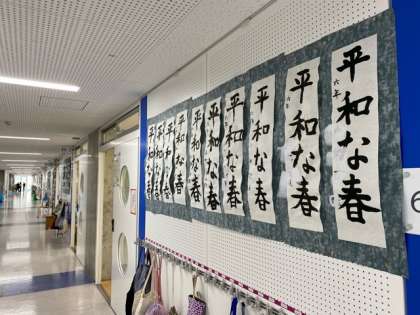 平和な春
平和な春
平和な春
平和な春
平和な春
平和な春
平和な春
六年
平和な春
六年
平和な春
6